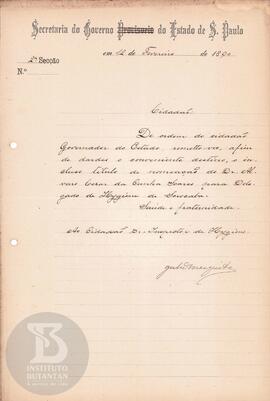 Secretaria do Governo Provisorio do Estado de S. Paulo
em 12 de Fevereiro de 1890
2ª Secção
N.º
Cidadaõ
De ordem do cidadaõ
Governador do Estado, remetto-vos, afim
de dardes o conveniente destino, o in-
cluso titulo de nomeação do Dr. Al-
varo Cesar da Cunha Soares para Dele-
gado de Hygiene de Sorocaba.
Saude e fraternidade.
Ao Cidadaõ Dr. Inspector de Hygiene
INSTITUTO
BUTANTAN
A serviço da vida